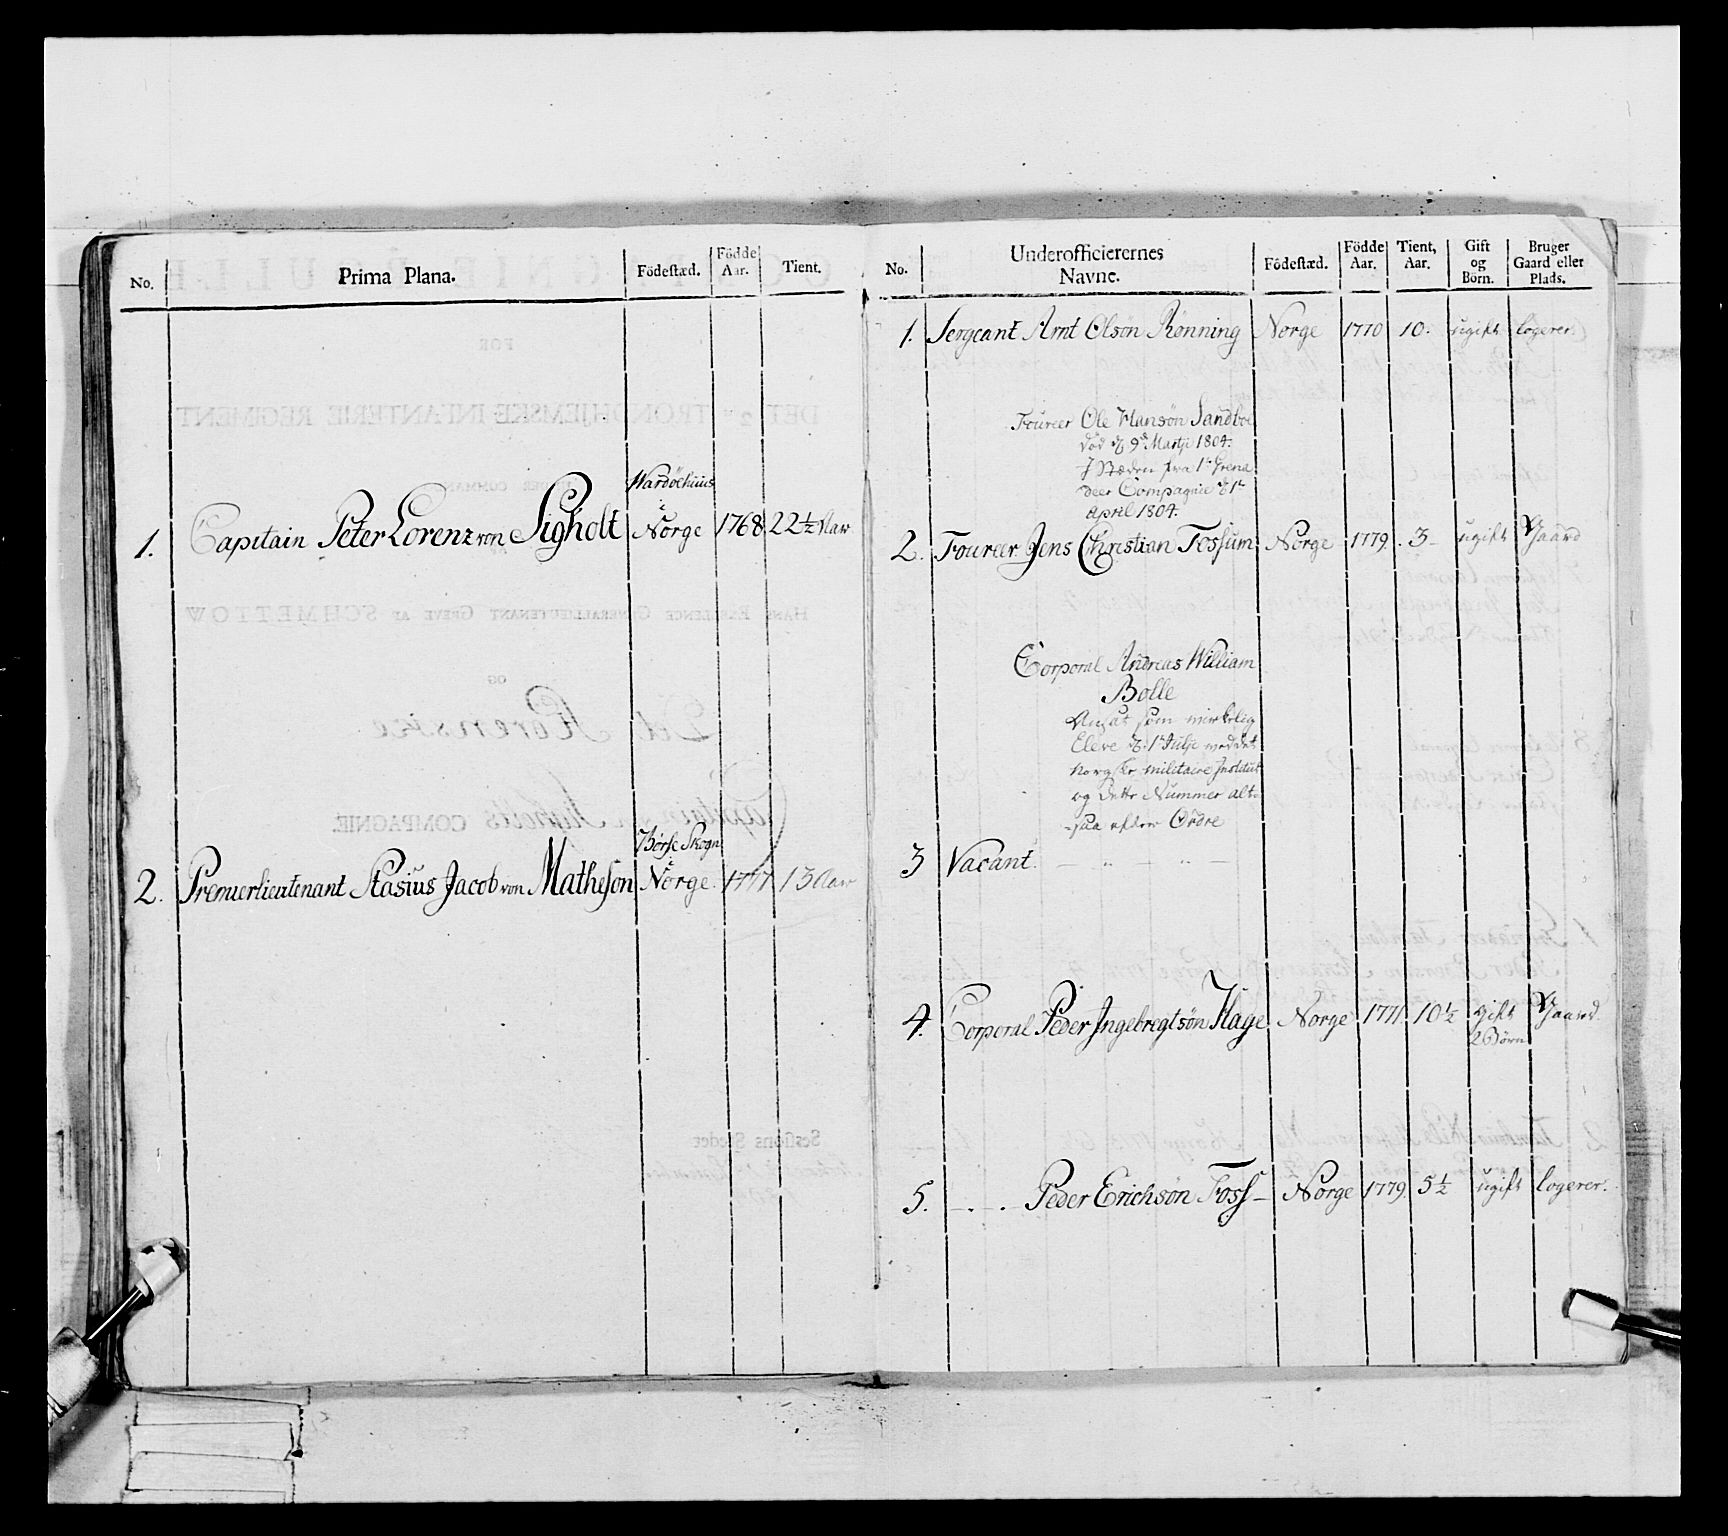 No.
Prima Plana.
Födestæd.
Födde Aar.
Tient.
Wardöehuus
1. Capitain Peter Lorenz von Sigholt Norge 1768 22½ Aar
Börse Skogn
2. Premierlieutenant Stasius Jacob von Matheson Norge 1777 13 Aar
No.
Underofficierernes
Navne.
Födestæd.
Födde Aar.
Tient, Aar.
Gift og Börn.
Bruger Gaard eller Plads.
1. Sergeant Arnt Olsön Rönning Norge 1770 10. ugift logerer
Foureer Ole Hansön Sandboe
död d. 9de Martji 1804.
I Stæden fra 1te Grena
deer Compagnie d. 1te
April 1804.
2. Foureer Jens Christian Fossum Norge 1779 3 ugift Gaard
Corporal Andreas William
Bolle
Ansat som wirkelig
Eleve d. 1te Julji ved det
Norgske militaire Institut
og dette Nummer alt-
saa efter Ordre
3 Vacant. — „ — „ —
4. Corporal Peder Ingebregtsön Hage Norge 1771 10½ gift Gaard.
2 Börn
5. — . . — Peder Erichsön Foss — Norge 1779 5½ ugift logerer.